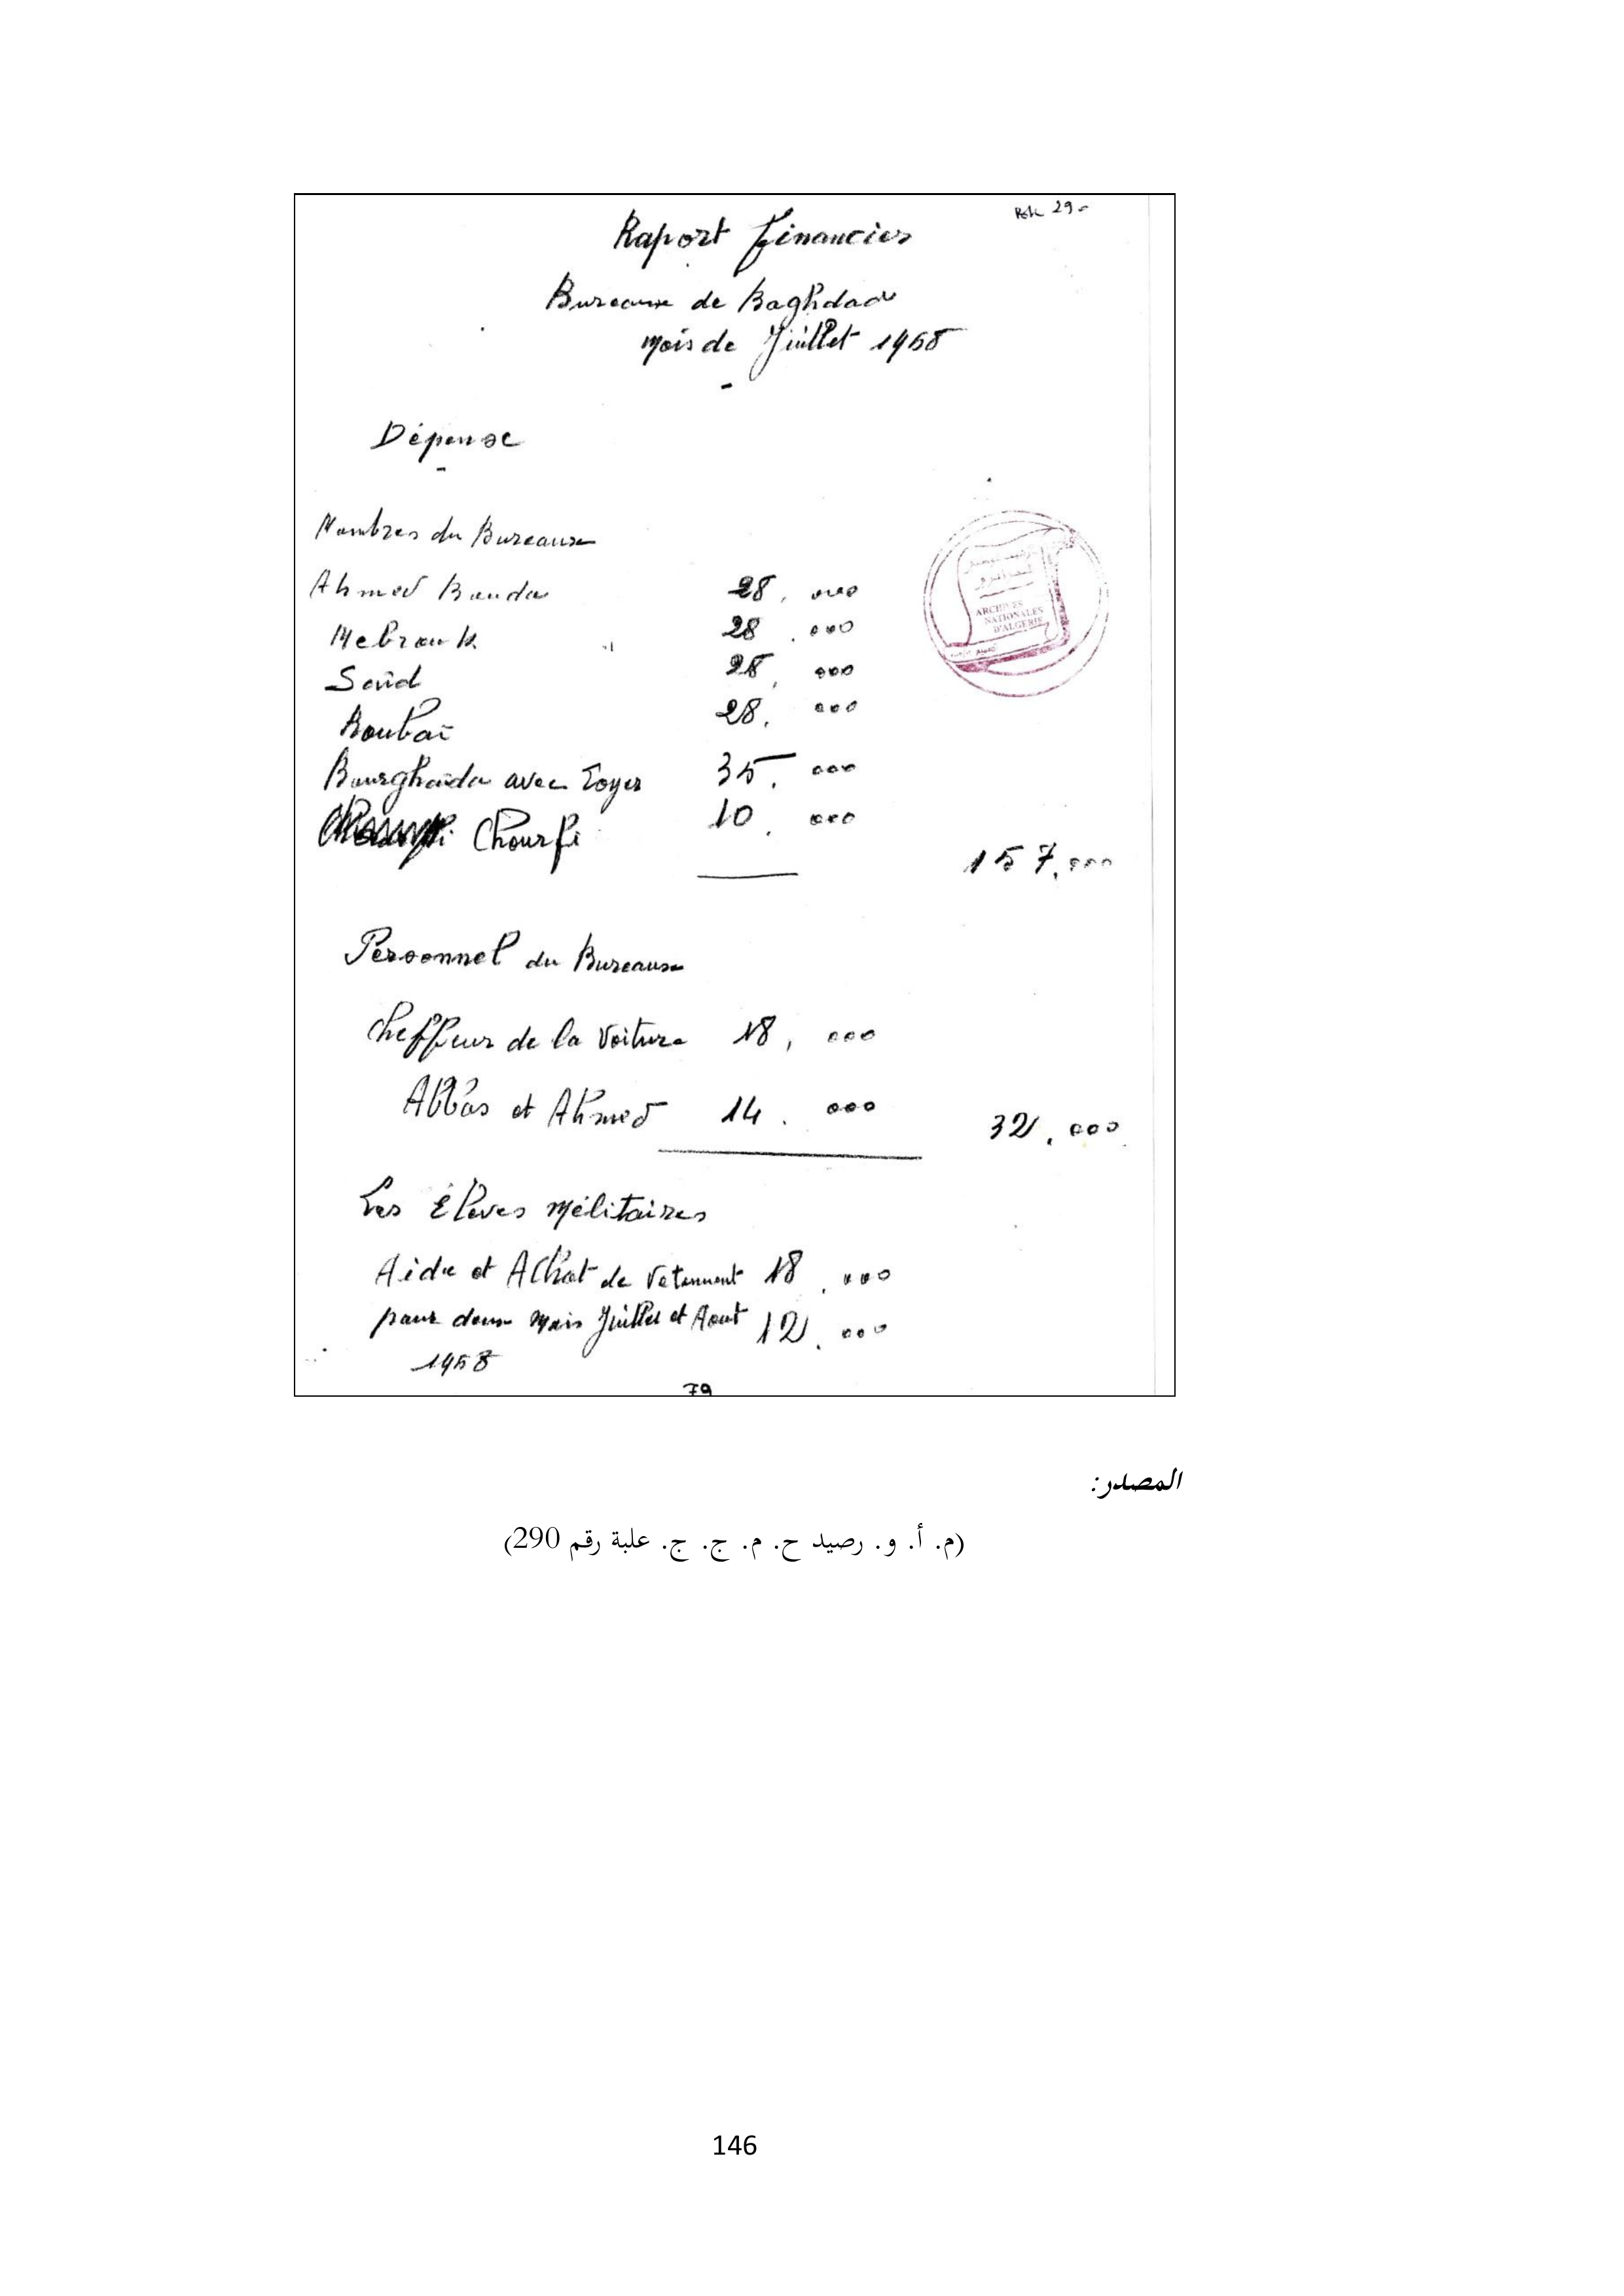 29-
Raport financier
Bureaux de Baghdad
mois de Juillet 1958
Dépense
Membres du Bureaux
Ahmed Bouda 28.000
Mebrouk 28.000
Saïd 28.000
28.000
avec loyer 35.000
Chourfi 10.000
157.000
Personnel du Bureaux
cheffeur de la voiture 18,000
Abbas et Ahmed 14.000
32.000
Les Élèves mélitaires
Aide et Achat de Vetement 18.000
pour deux mois Juillet et Aout 12.000
1958
79
ARCHIVES
NATIONALES
D'ALGERIE
المصدر:
(م. أ. و. رصيد ح. م. ج. ج. علبة رقم 290)
146